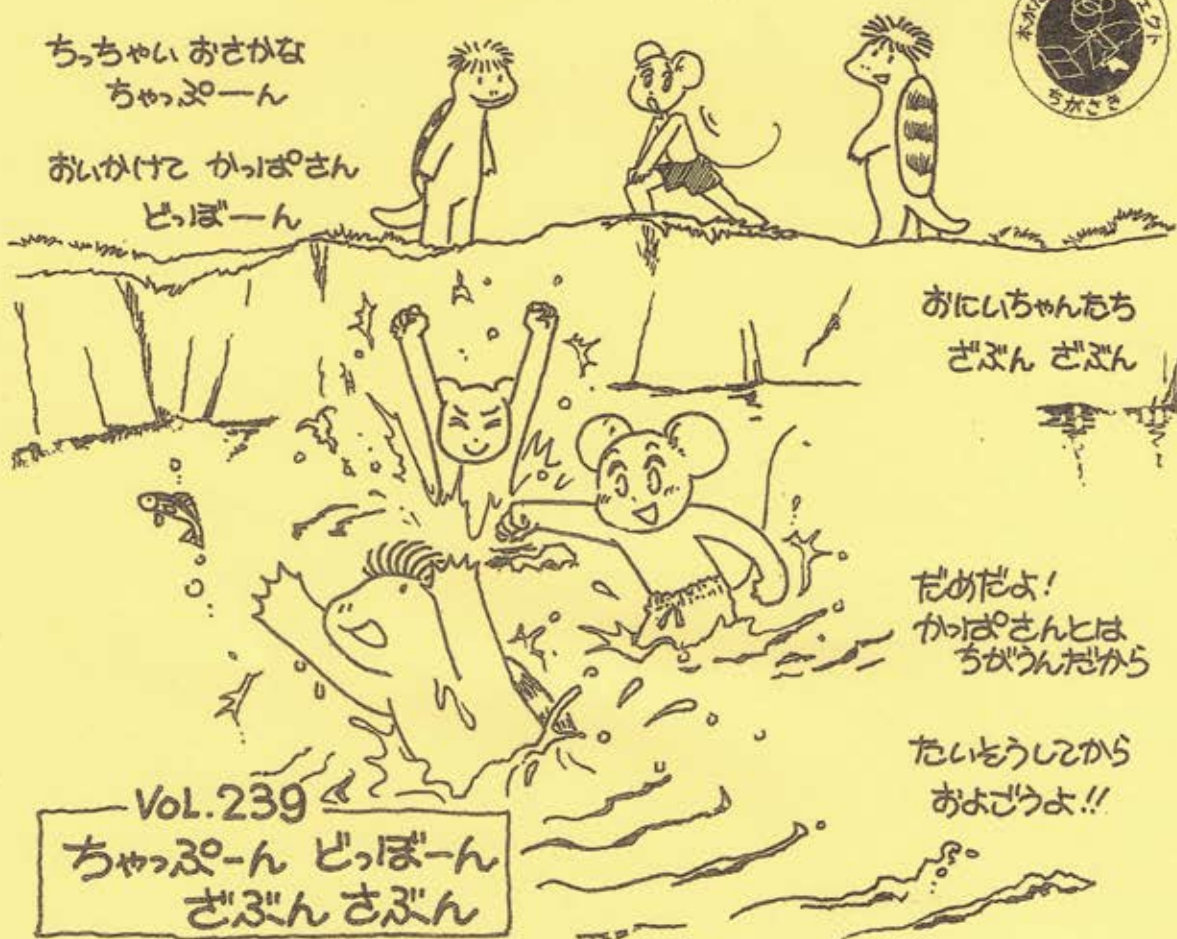 ちっちゃい おさかな
ちゃっぷーん
おいかけて かっぱさん
どっぼーん
おにいちゃんたち
ざぶん ざぶん
だめだよ!
かっぱさんとは
ちがうんだから
たいそうしてから
およごうよ!!
VOL.239
ちゃっぷーん どっぼーん
ざぶん さぶん
ちがさき